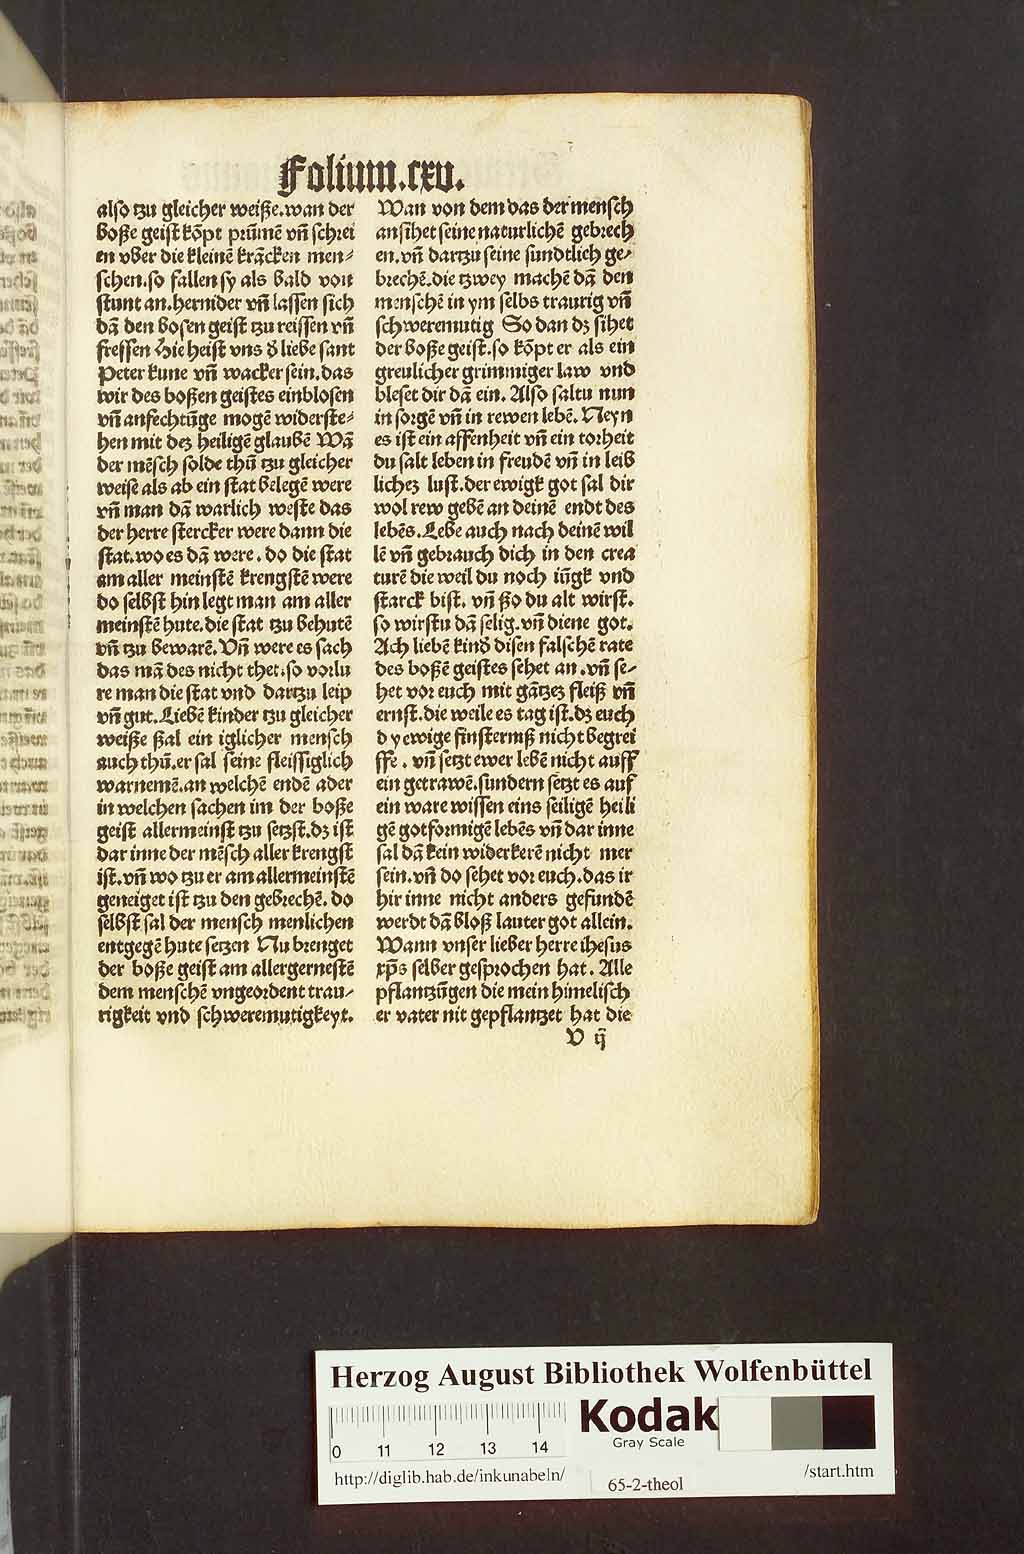 Folium.cxv.
also tzu gleicher weiße.wan der
boße geist kõpt prũmẽ vñ schrei
en vber die kleinẽ krãcken men⸗
schen.so fallen sy als bald von
stunt an.hernider vñ lassen sich
dã den bosen geist tzu reissen vñ
fressen Hie heist vns ð liebe sant
Peter kune vñ wacker sein.das
wir des boßen geistes einblosen
vñ anfechtũge mogẽ widerste⸗
hen mit deȝ heiligẽ glaubẽ Wã
der mẽsch solde thũ tzu gleicher
weise als ab ein stat belegẽ were
vñ man dã warlich weste das
der herre stercker were dann die
stat.wo es dã were. do die stat
am aller meinstẽ krengstẽ were
do selbst hin legt man am aller
meinstẽ hute.die stat tzu behutẽ
vñ tzu bewarẽ. Vñ were es sach
das mã des nicht thet.so vorlu
re man die stat vnd dartzu leip
vñ gut. Liebẽ kinder tzu gleicher
weiße ßal ein iglicher mensch
auch thũ.er sal seine fleissiglich
warnemẽ.an welchẽ endẽ ader
in welchen sachen im der boße
geist allermeinst tzu setzst.dȝ ist
dar inne der mẽsch aller krengst
ist.vñ wo tzu er am allermeinstẽ
geneiget ist tzu den gebrechẽ. do
selbst sal der mensch menlichen
entgegẽ hute setzen Nu brenget
der boße geist am allergernestẽ
dem menschẽ vngeordent trau⸗
rigkeit vnd schweremutigkeyt.
Wan von dem das der mensch
ansihet seine naturlichẽ gebrech
en.vñ dartzu seine sundtlich ge⸗
brechẽ.die tzwey machẽ dã den
menschẽ in ym selbs traurig vñ
schweremutig So dan dȝ sihet
der boße geist.so kõpt er als ein
greulicher grimmiger law vnd
bleset dir dã ein. Also saltu nun
in sorgẽ vñ in rewen lebẽ. Neyn
es ist ein affenheit vñ ein torheit
du salt leben in freudẽ vñ in leib
licheȝ lust.der ewigk got sal dir
wol rew gebẽ an deinẽ endt des
lebẽs.Lebe auch nach deinẽ wil
lẽ vñ gebrauch dich in den crea
turẽ die weil du noch iũgk vnd
starck bist. vñ ßo du alt wirst.
so wirstu dã selig.vñ diene got.
Ach liebẽ kinð disen falschẽ rate
des boßẽ geistes sehet an.vñ se⸗
het vor euch mit gãtzeȝ fleiß vñ
ernst.die weile es tag ist.dȝ euch
dy ewige finsterniß nicht begrei
ffe. vñ setzt ewer lebẽ nicht auff
ein getrawẽ.sundern setzt es auf
ein ware wissen eins seiligẽ heili
gẽ gotformigẽ lebẽs vñ dar inne
sal dã kein widerkerẽ nicht mer
sein.vñ do sehet vor euch.das ir
hir inne nicht anders gefundẽ
werdt dã bloß lauter got allein.
Wann vnser lieber herre ihesus
xp̃s selber gesprochen hat. Alle
pflantzũgen die mein himelisch
er vater nit gepflantzet hat die
V ij
Herzog August Bibliothek Wolfenbüttel
0 11 12 13 14
Kodak
Gray Scale
http://diglib.hab.de/inkunabeln/
65-2-theol
/start.htm